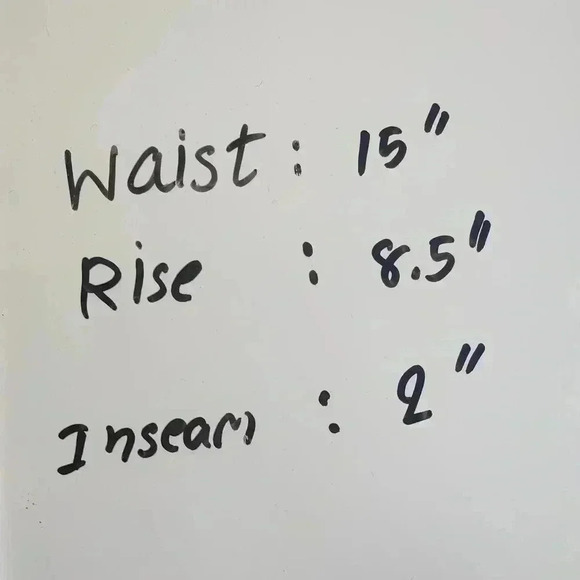 Waist : 15"
Rise : 8.5"
Inseam : 2"